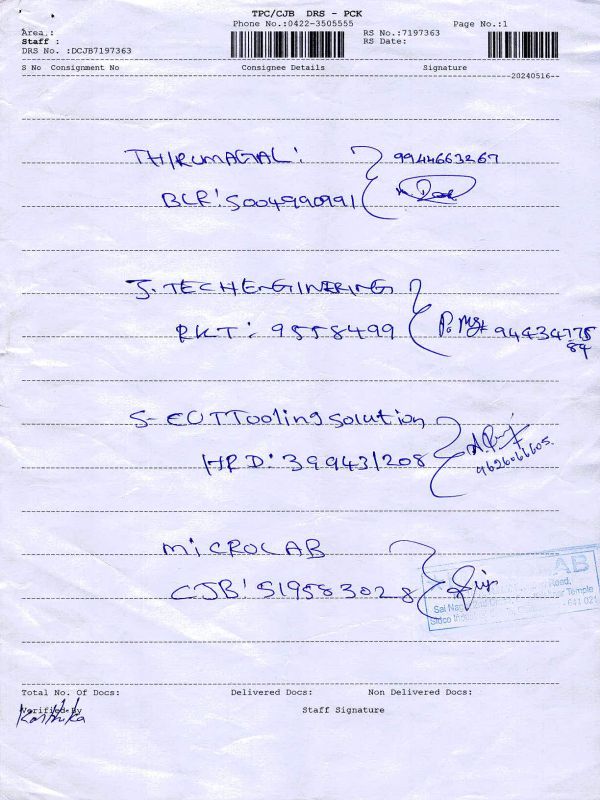 TPC/CJB DRS - PCK
Phone No.:0422-3505555 Page No.:1
Area.: RS No.:7197363
Staff : RS Date:
DRS No. :DCJB7197363
S No Consignment No Consignee Details Signature
20240516
THIRUMAGAL: 9944663267
BLR: 5004990991
J. TECH ENGINEERING
RKT: 9558499 94434775
84
S-ECUT Tooling Solution
HRD: 399431208 9626066605.
MICROLAB
CJB: 519583028
AB
Road,
Sai Nag Temple
Sidco Indu 641 021
Total No. Of Docs: Delivered Docs: Non Delivered Docs:
Verified By Staff Signature
Karthika